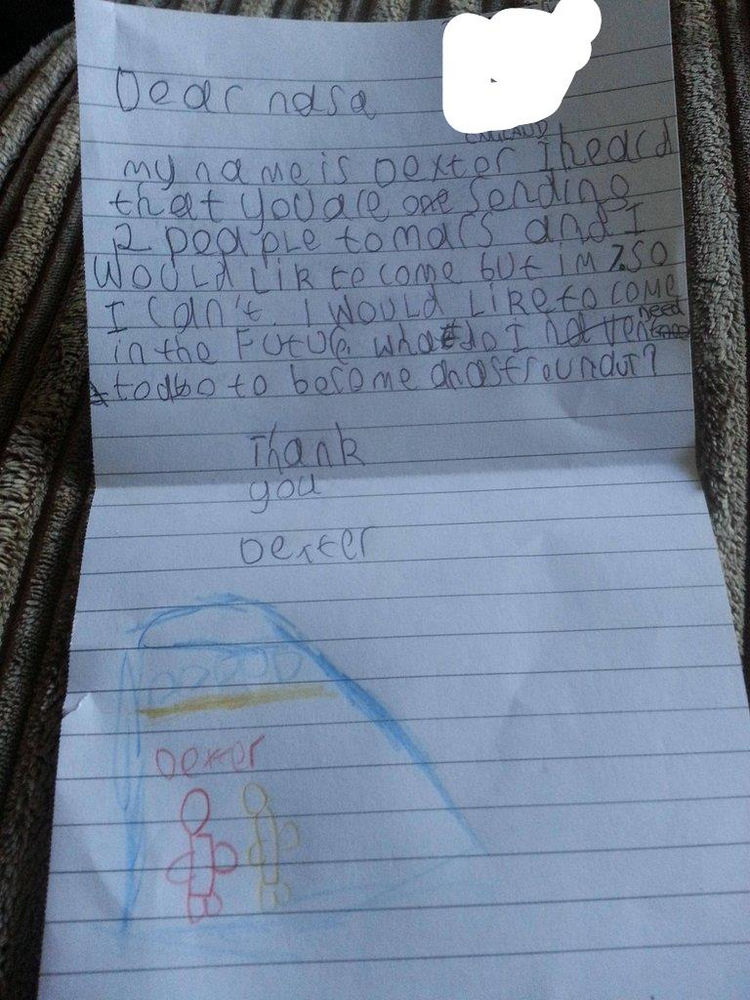 Dear nasa
ENGLAND
my name is Dexter I heard
that you are sending
2 people to mars and I
would like to come but im 7. so
I can't. I would like to come
in the Future. what do I need
to do to become an astroundut?
Thank
you
Dexter
Dexter